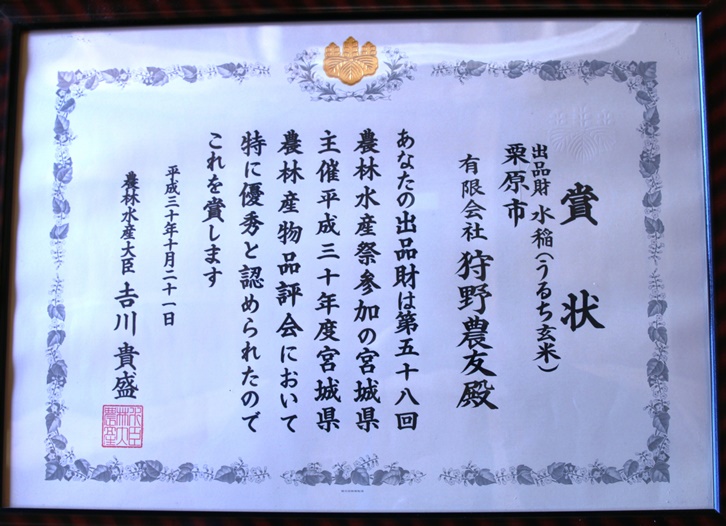 賞状
出品財 水稲(うるち玄米)
栗原市
有限会社 狩野農友殿
あなたの出品財は第五十八回
農林水産祭参加の宮城県
主催平成三十年度宮城県
農林産物品評会において
特に優秀と認められたので
これを賞します
平成三十年十月二十一日
農林水産大臣 𠮷川 貴盛